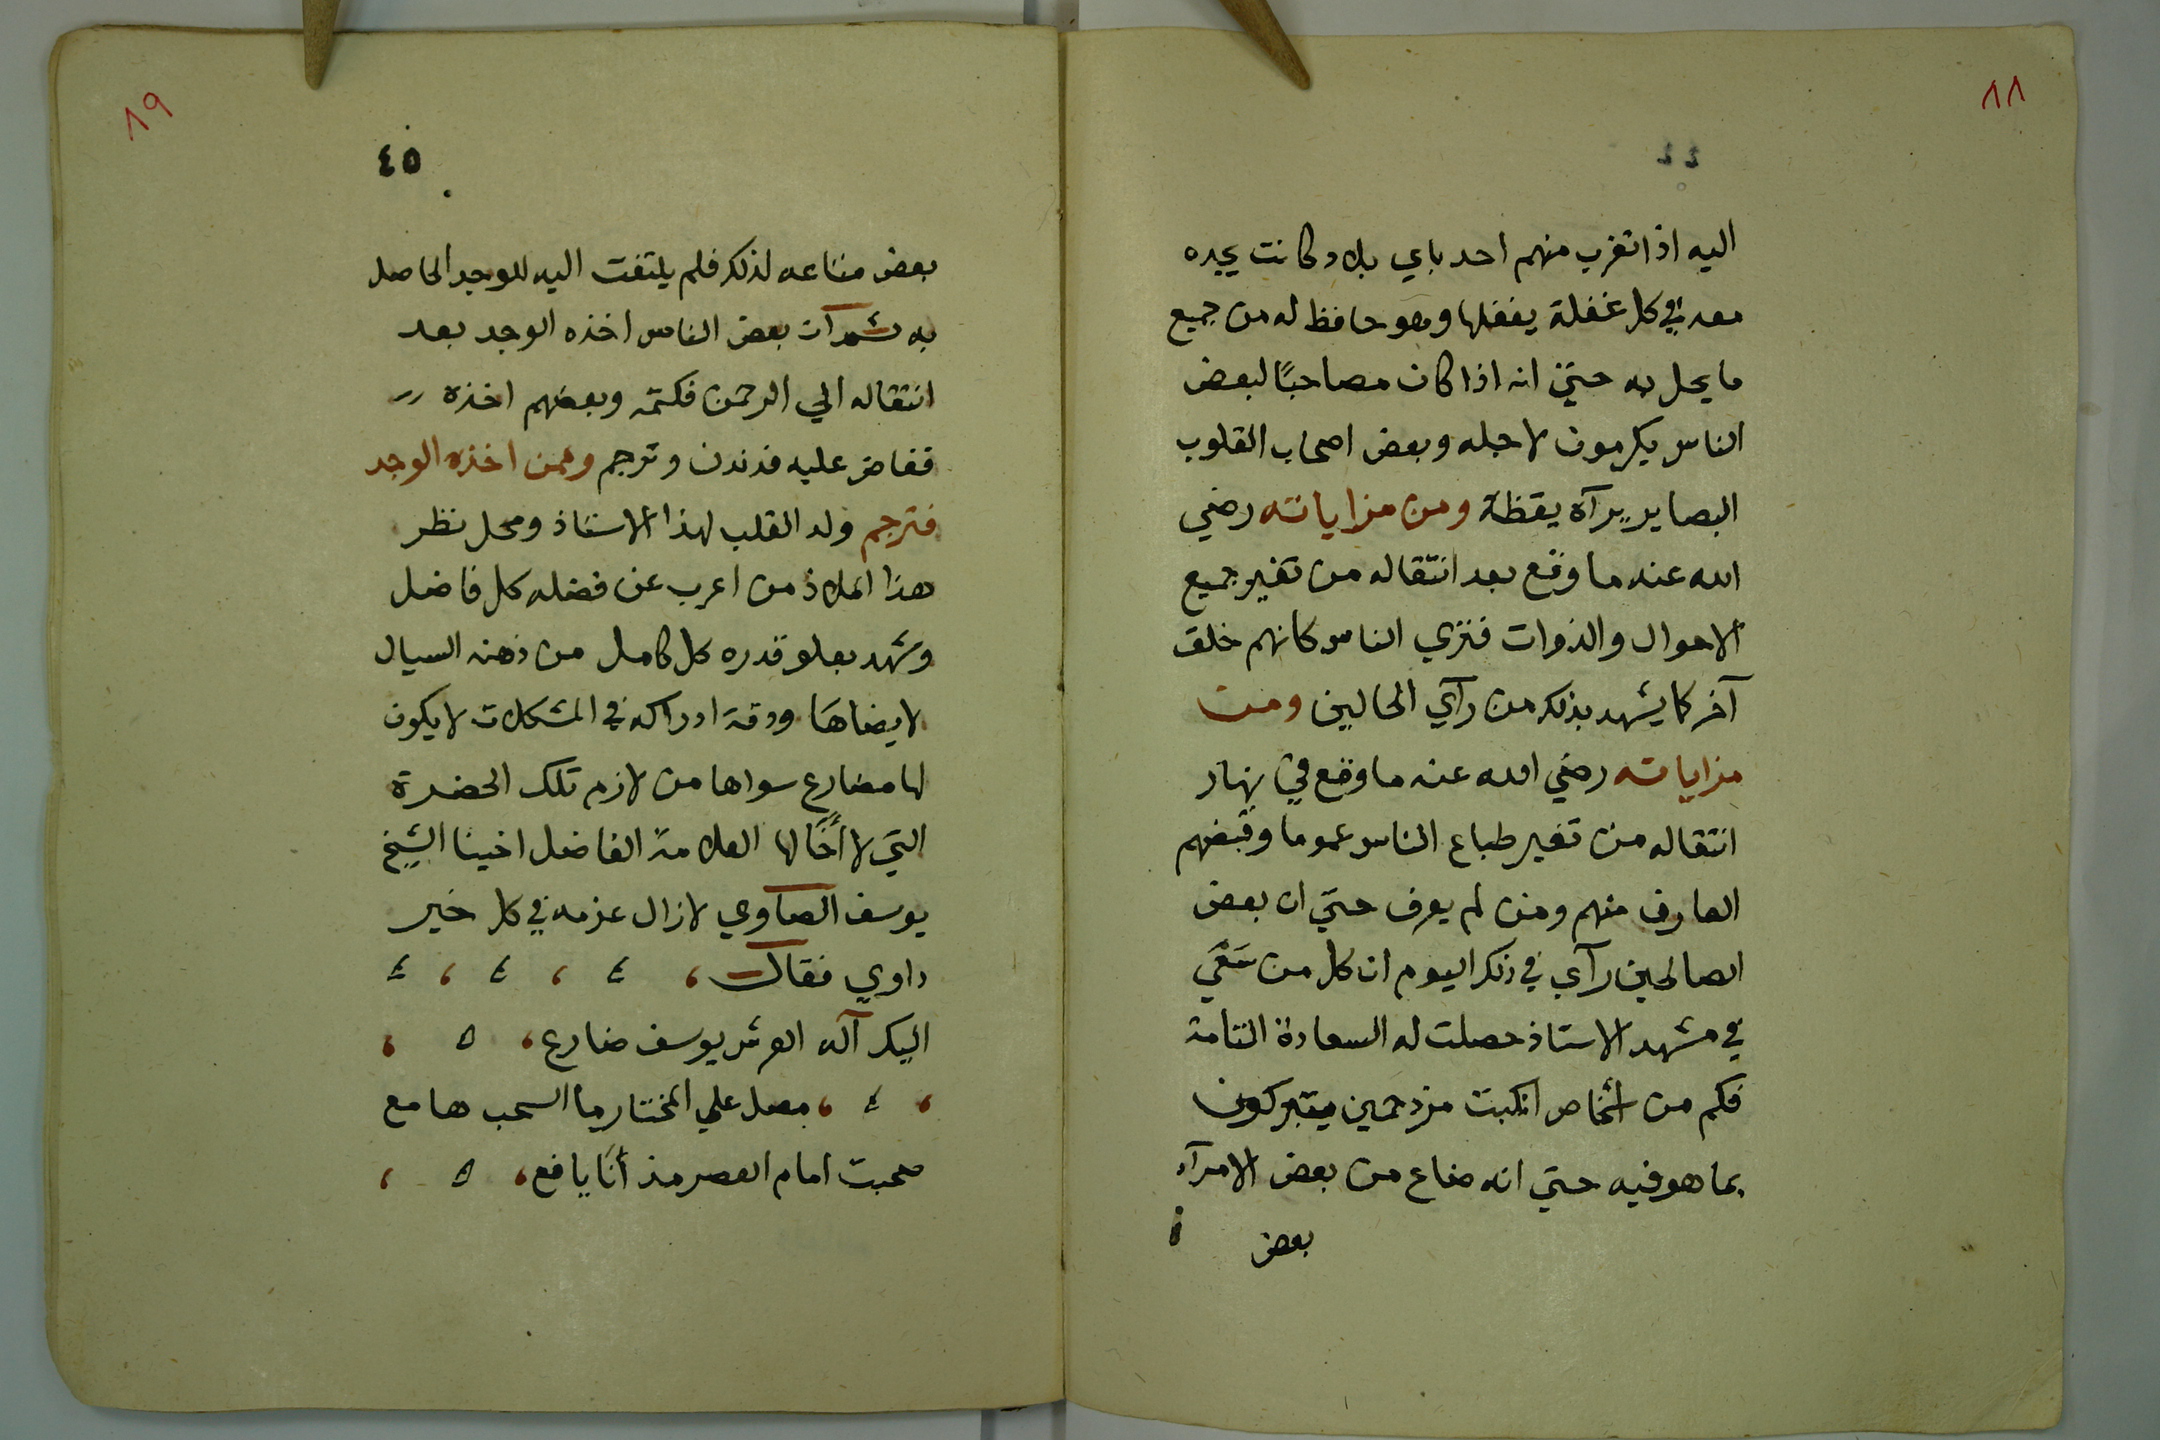 ٨٨
٤٤
اليه اذا تغرب منهم احد باي بلاد كانت يجده
معه في كل غفلة يغفلها وهو حافظ له من جميع
ما يحل به حتي انه اذا كان مصاحبًا لبعض
الناس يكرمون لاجله وبعض اصحاب القلوب
البصاير يرآه يقظة ومن مزاياته رضي
الله عنه ما وقع بعد انتقاله من تغير جميع
الاحوال والذوات فتري الناس كانهم خلق
آخر كما يشهد بذلك من رآي الحالين ومن
مزاياته رضي الله عنه ما وقع في نهار
انتقاله من تغير طباع الناس عموما وقبضهم
العارف منهم ومن لم يعرف حتي ان بعض
الصالحين رآي في ذلك اليوم ان كل من
في مشهد الاستاذ حصلت له السعادة التامة
فكم من اشخاص انكبت مزدحمين يتبركون
بما هو فيه حتي انه ضاع من بعض الامرآء
بعض
٨٩
٤٥
بعض متاعه لذلك فلم يلتفت اليه للوجد الحاصل
به ثم آن بعض الناس اخذه الوجد بعد
انتقاله الي الرحمن فكتمه وبعضهم اخذه
ففاض عليه فدندن وترجم وممن اخذه الوجد
فترجم ولد القلب لهذا الاستاذ ومحل نظر
هذا الملاذ من اعرب عن فضله كل فاضل
وشهد بعلو قدره كل كامل من ذهنه السيال
لا يضاها ودقة ادراكه في المشكلات لا يكون
لها مضارع سواها من لازم تلك الحضرة
التي لا أخا لها العلامة الفاضل اخينا الشيخ
يوسف الصاوي لا زال عزمه في كل خير
داوي فقال
اليك آله العرش يوسف ضارع
مصل علي المختار ما السحب هامع
صحبت امام العصر مذ أنا يافع